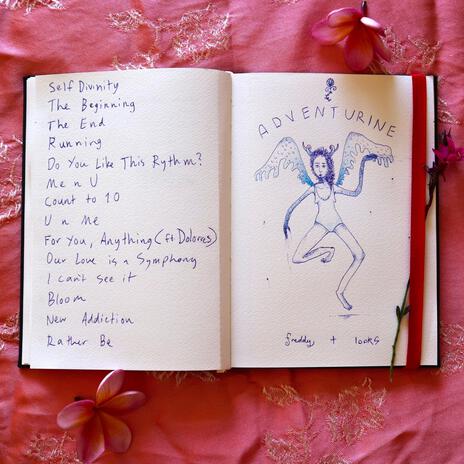 Self Divinity
The Beginning
The End
Running
Do You Like This Rythm?
Me n U
Count to 10
U n Me
For You, Anything (ft Dolores)
Our Love is a Symphony
I can't see it
Bloom
New Addiction
Rather Be
ADVENTURINE
freddy + looks